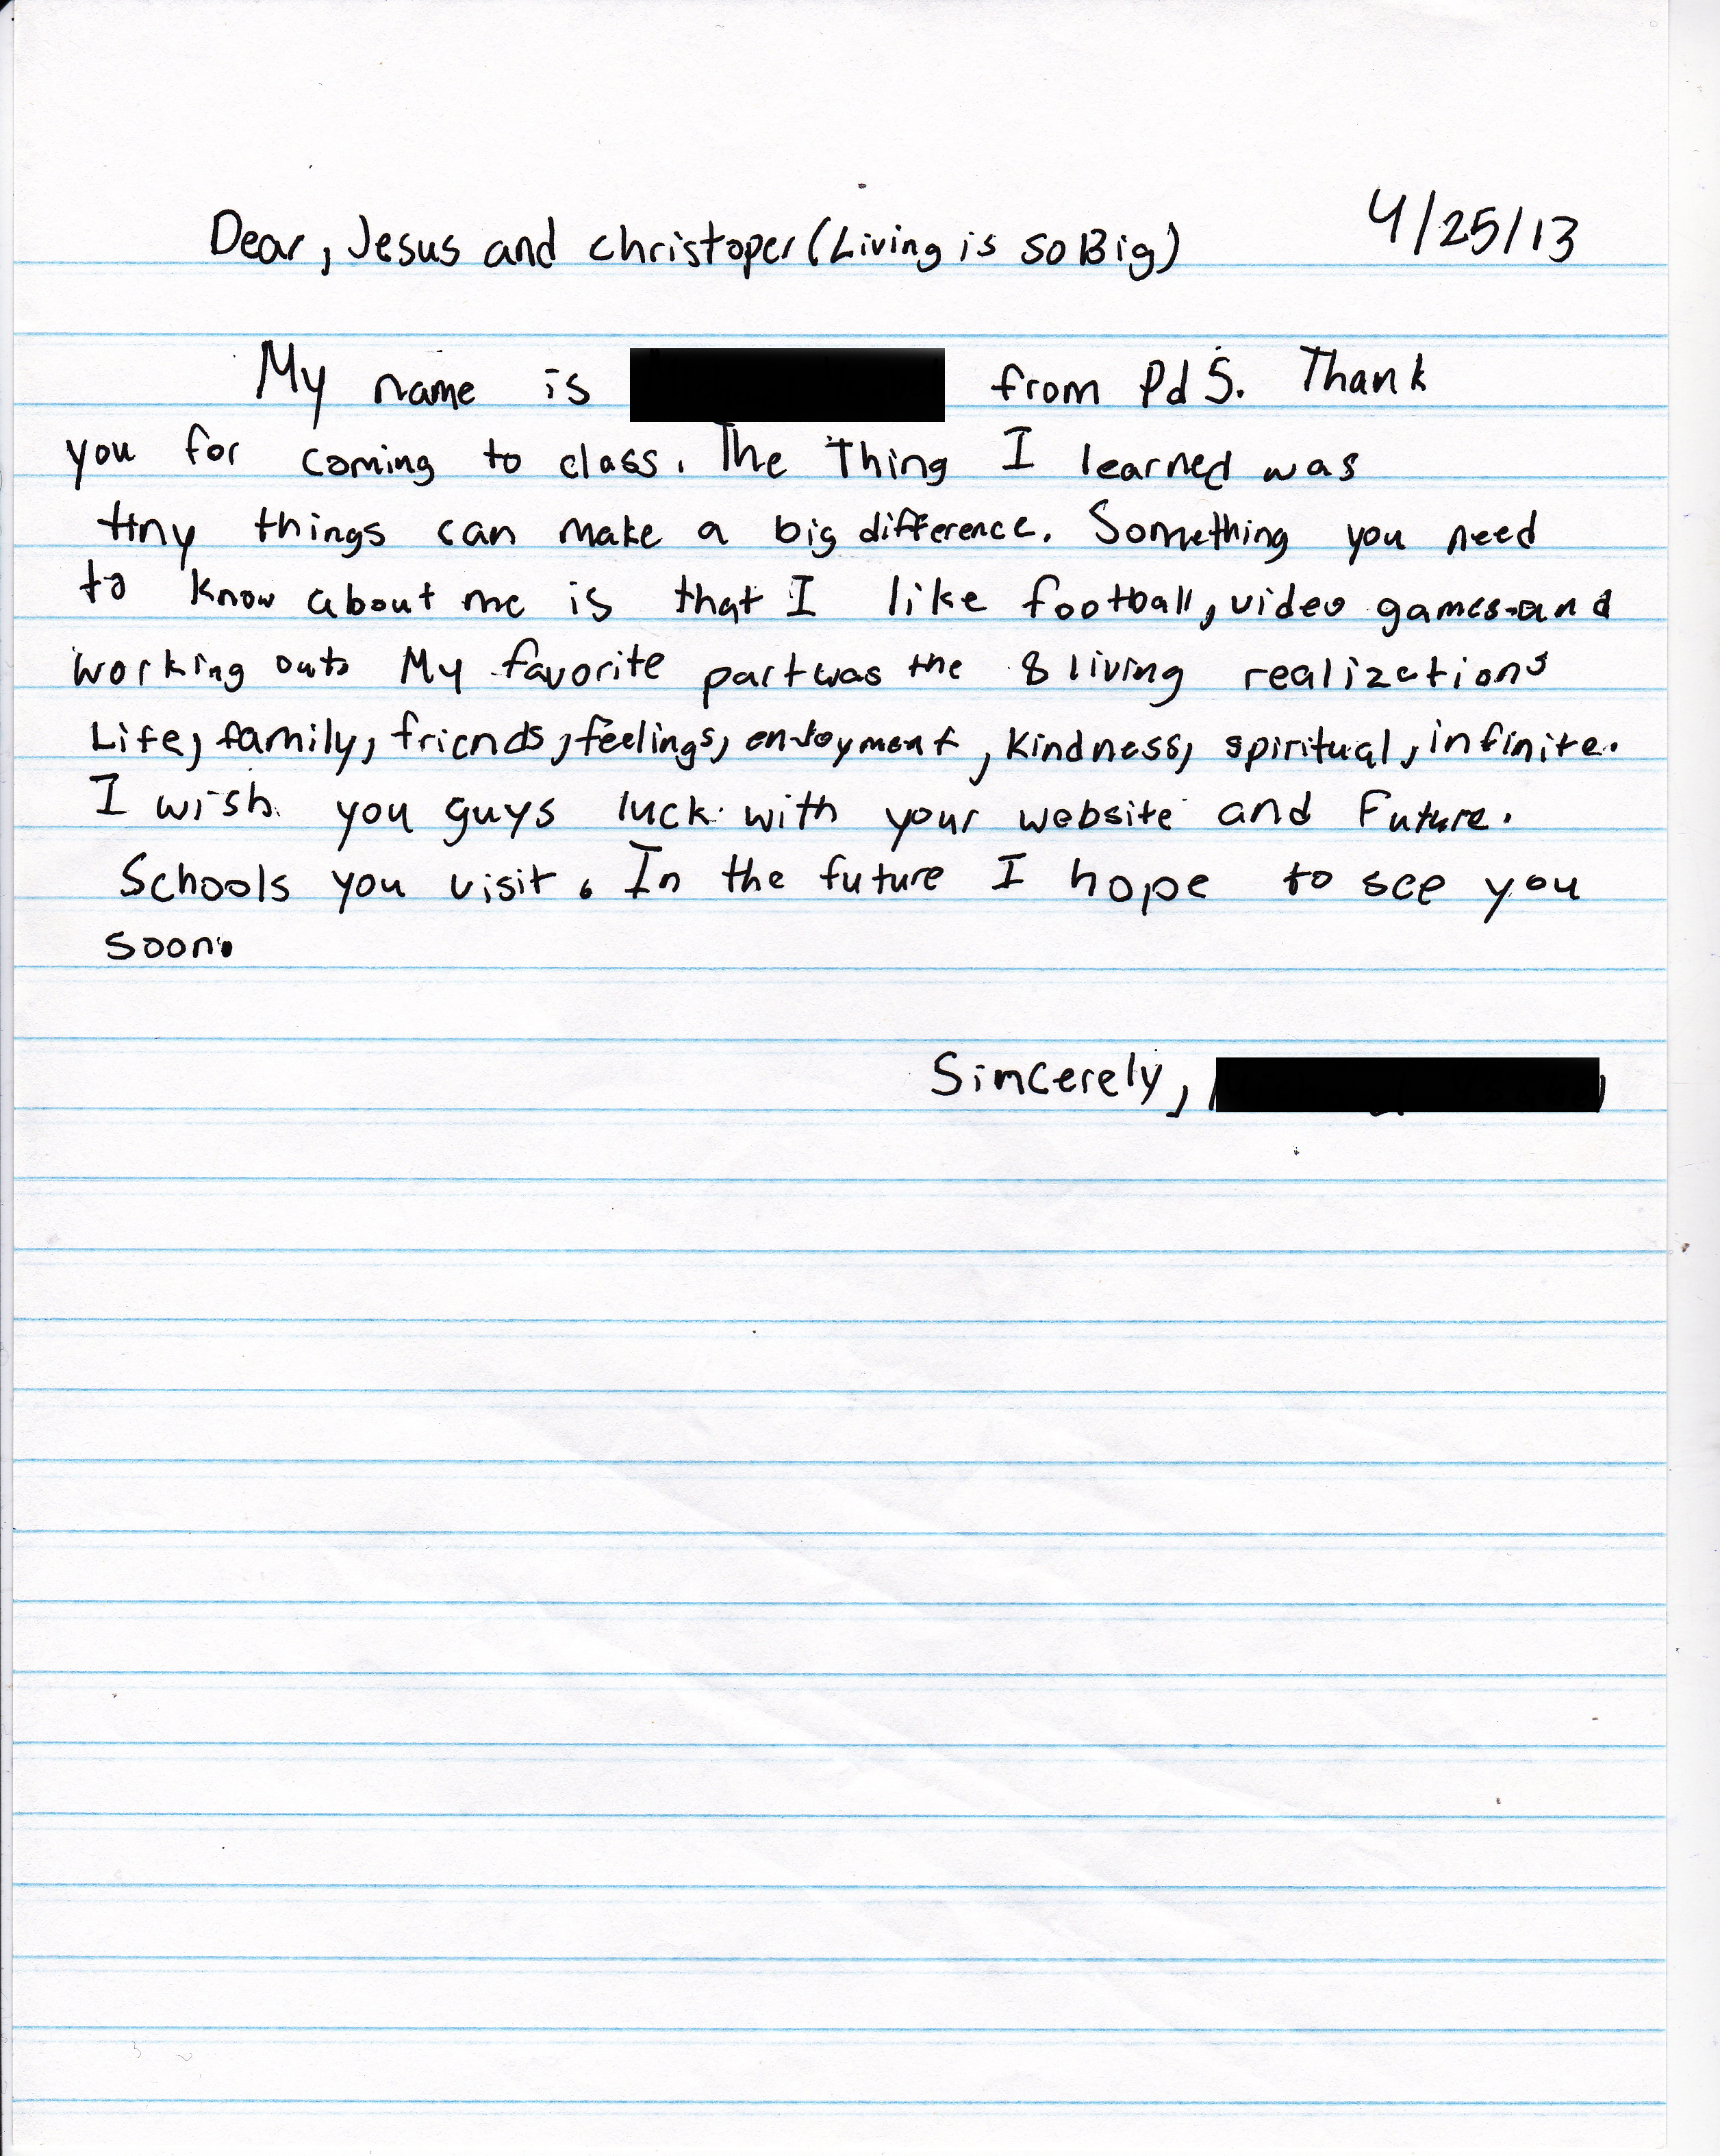 Dear, Jesus and christoper (Living is so Big) 4/25/13
My name is from Pd 5. Thank
you for coming to class. The Thing I learned was
tiny things can make a big difference. Something you need
to know about me is that I like football, video games and
working out. My favorite part was the 8 living realizations
Life, family, friends, feelings, enjoyment, kindness, spiritual, infinite.
I wish you guys luck with your website and Future.
Schools you visit. In the future I hope to see you
soon.
Sincerely,